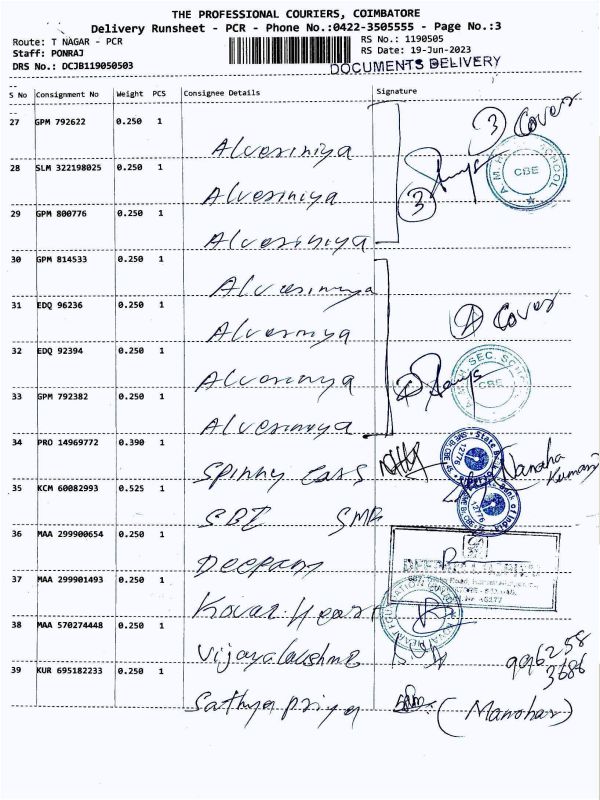 THE PROFESSIONAL COURIERS, COIMBATORE
Delivery Runsheet - PCR - Phone No.:0422-3505555 - Page No.:3
Route: T NAGAR - PCR RS No.: 1190505
Staff: PONRAJ RS Date: 19-Jun-2023
DRS No.: DCJB119050503 DOCUMENTS DELIVERY
S No Consignment No Weight PCS Consignee Details Signature
27 GPM 792622 0.250 1 Alvesiniya
3 Cover
28 SLM 322198025 0.250 1 Alvesiniya
3
CBE
29 GPM 800776 0.250 1 Alvesiniya
30 GPM 814533 0.250 1
31 EDQ 96236 0.250 1
4 Cover
32 EDQ 92394 0.250 1
SEC. SCH
CBE
33 GPM 792382 0.250 1
34 PRO 14969772 0.390 1 Spinny Cars
State B
12776
35 KCM 60082993 0.525 1 SBI SMB
Bank of India
12776
36 MAA 299900654 0.250 1 Deepam
37 MAA 299901493 0.250 1 Kovai Heart
38 MAA 570274448 0.250 1 Vijayalakshmi
39 KUR 695182233 0.250 1 Sathya Priya
(Manohar)